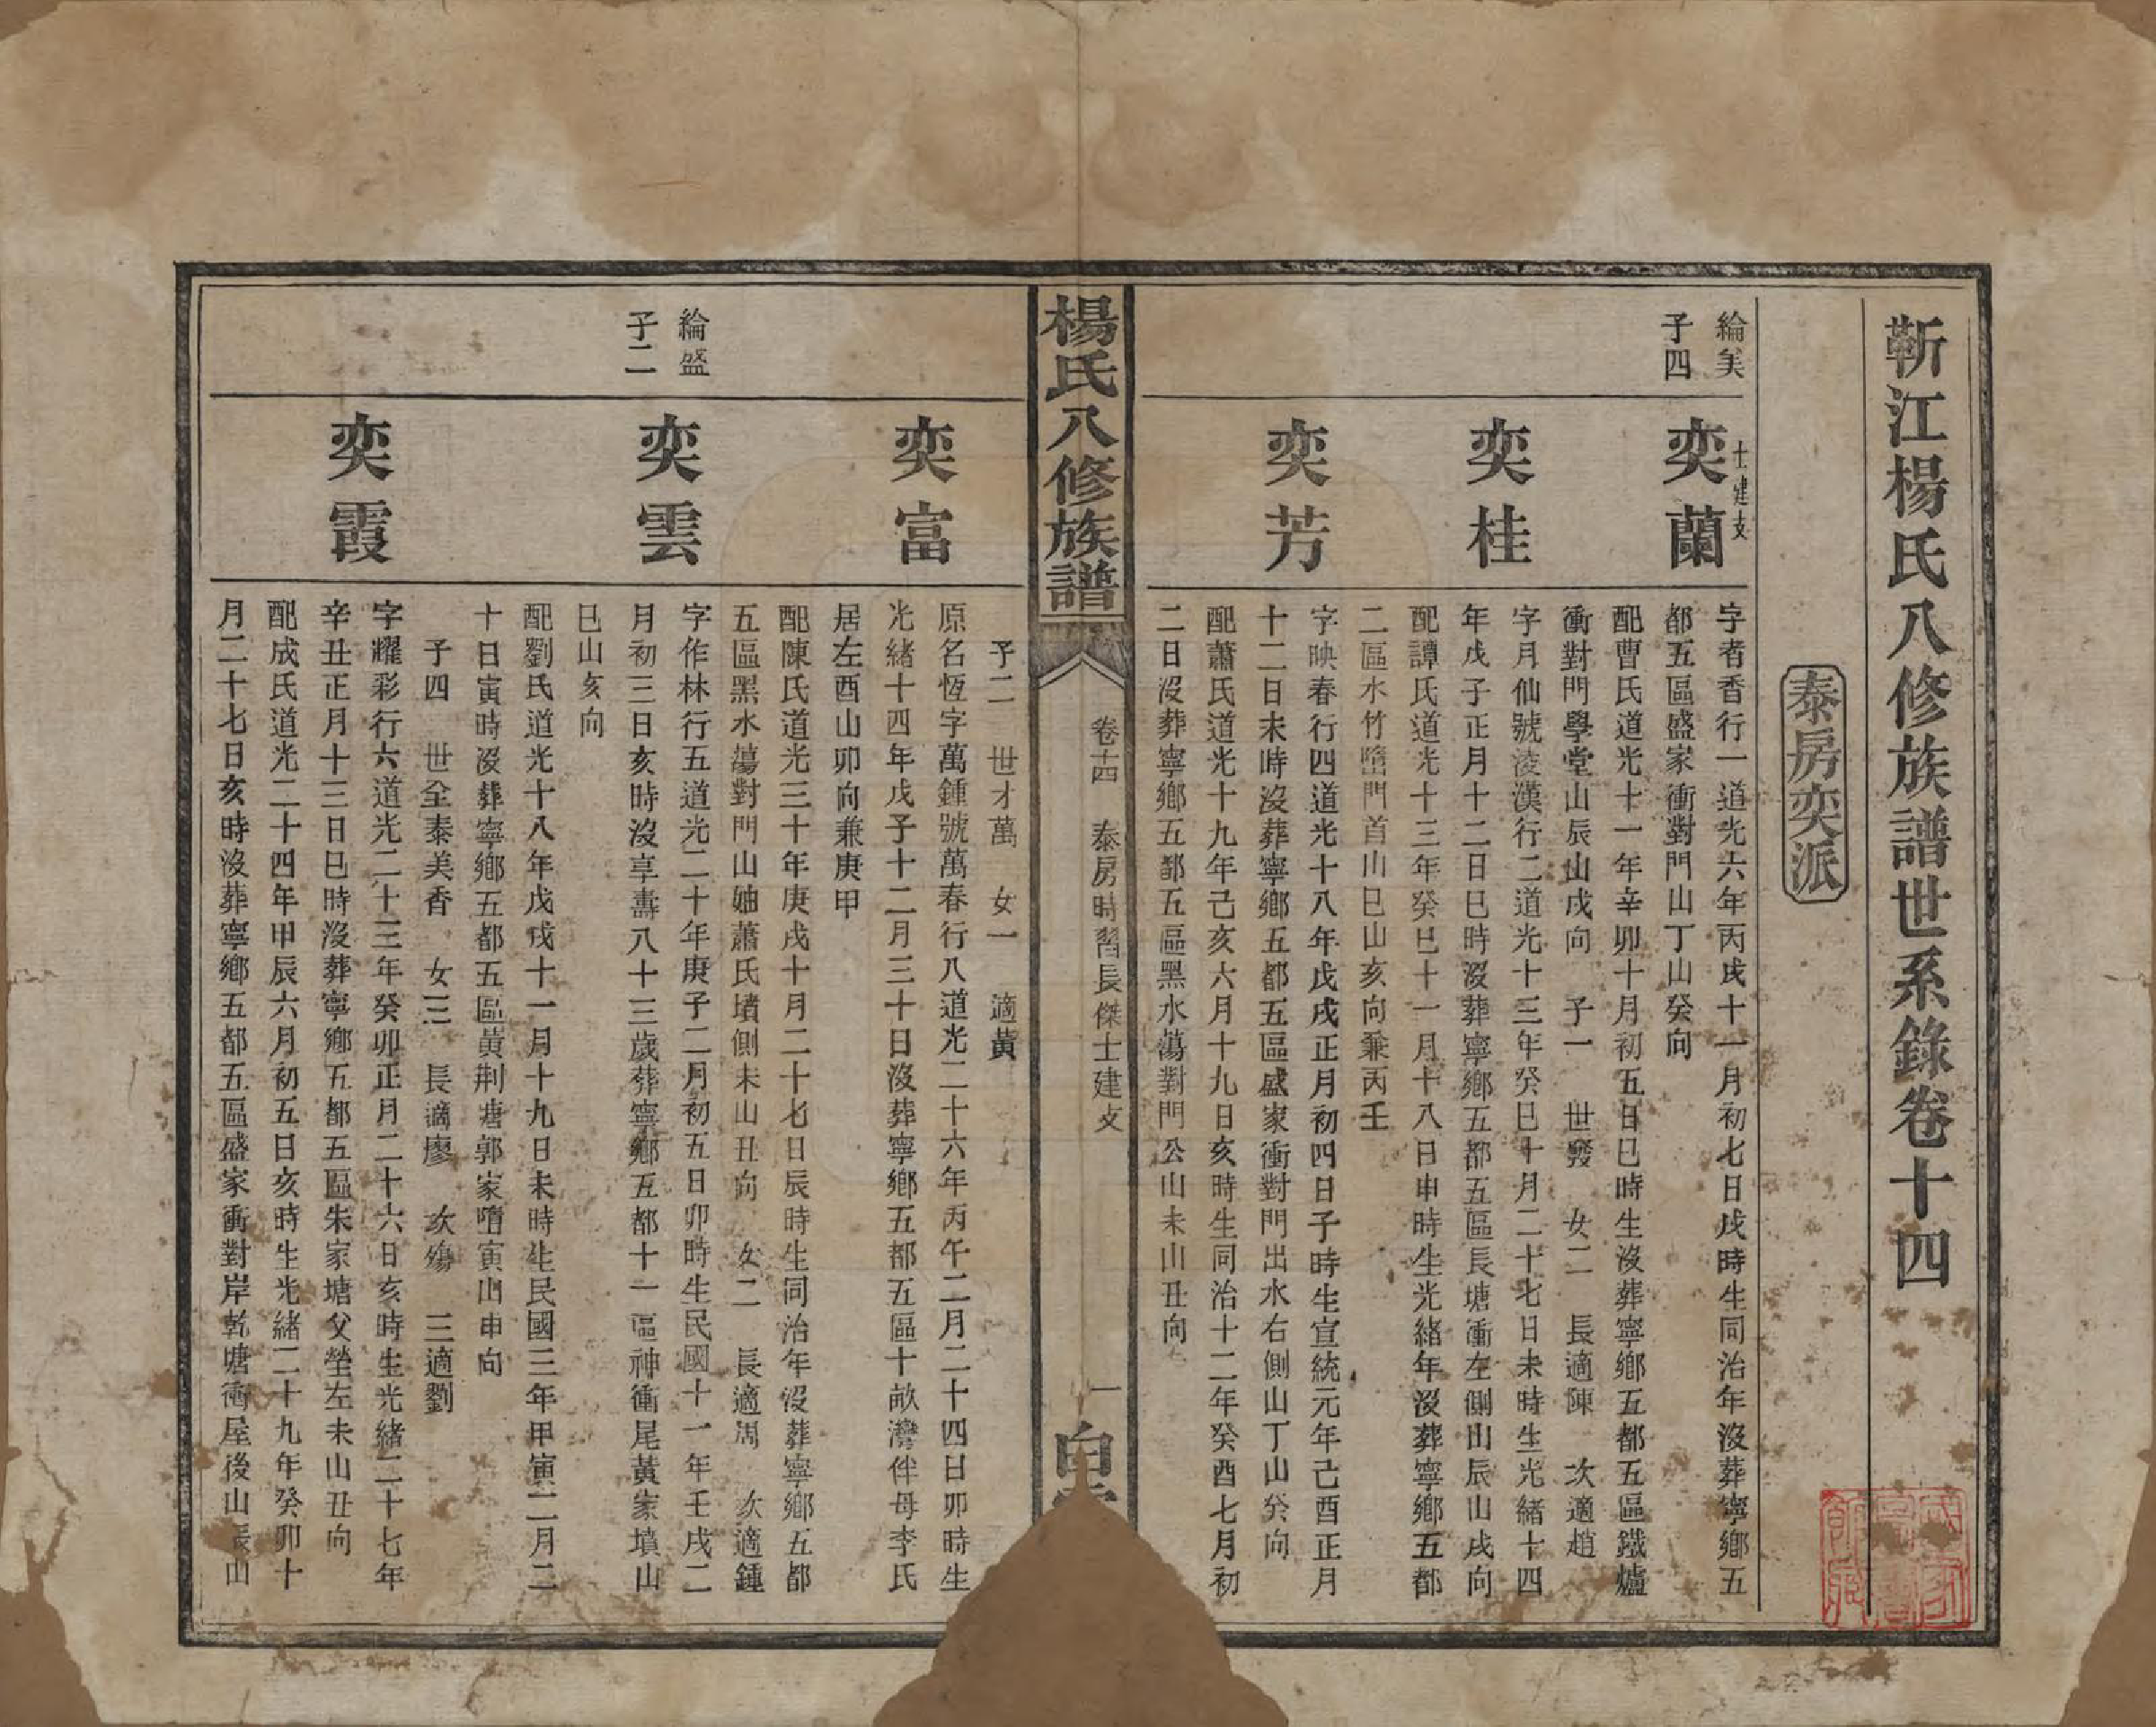 靳江楊氏八修族譜世系錄卷十四
泰房奕派
綸美
子四
士建支
奕蘭
字者香行一道光六年丙戌十一月初七日戌時生同治年沒葬寧鄉五
都五區盛家衝對門山丁山癸向
配曹氏道光十一年辛卯十月初五日巳時生沒葬寧鄉五都五區鐵爐
衝對門學堂山辰山戌向　子一　世發　女二　長適陳　次適趙
奕桂
字月仙號淩漢行二道光十三年癸巳十月二十七日未時生光緒十四
年戊子正月十二日巳時沒葬寧鄉五都五區長塘衝左側山辰山戌向
配譚氏道光十三年癸巳十一月十八日申時生光緒年沒葬寧鄉五都
二區水竹墮門首山巳山亥向兼丙壬
奕芳
字映春行四道光十八年戊戌正月初四日子時生宣統元年己酉正月
十二日未時沒葬寧鄉五都五區盛家衝對門出水右側山丁山癸向
配蕭氏道光十九年己亥六月十九日亥時生同治十二年癸酉七月初
二日沒葬寧鄉五都五區黑水蕩對門公山未山丑向
楊氏八修族譜
卷十四　泰房時習長傑士建支
一
白
子二　世才萬　女一　適黃
奕富
原名恆字萬鍾號萬春行八道光二十六年丙午二月二十四日卯時生
光緒十四年戊子十二月三十日沒葬寧鄉五都五區十畝灣伴母李氏
居左酉山卯向兼庚甲
配陳氏道光三十年庚戌十月二十七日辰時生同治年沒葬寧鄉五都
五區黑水蕩對門山妯蕭氏墳側未山丑向　女二　長適周　次適鍾
綸盛
子二
奕雲
字作林行五道光二十年庚子二月初五日卯時生民國十一年壬戌二
月初三日亥時沒享壽八十三歲葬寧鄉五都十一區神衝尾黃家墳山
巳山亥向
配劉氏道光十八年戊戌十一月十九日未時生民國三年甲寅二月二
十日寅時沒葬寧鄉五都五區黃荆塘郭家𡐓寅山申向
子四　世全泰美香　女三　長適廖　次殤　三適劉
奕霞
字耀彩行六道光二十三年癸卯正月二十六日亥時生光緒二十七年
辛丑正月十三日巳時沒葬寧鄉五都五區朱家塘父塋左未山丑向
配成氏道光二十四年甲辰六月初五日亥時生光緒二十九年癸卯十
月二十七日亥時沒葬寧鄉五都五區盛家衝對岸乾塘衝屋後山辰山